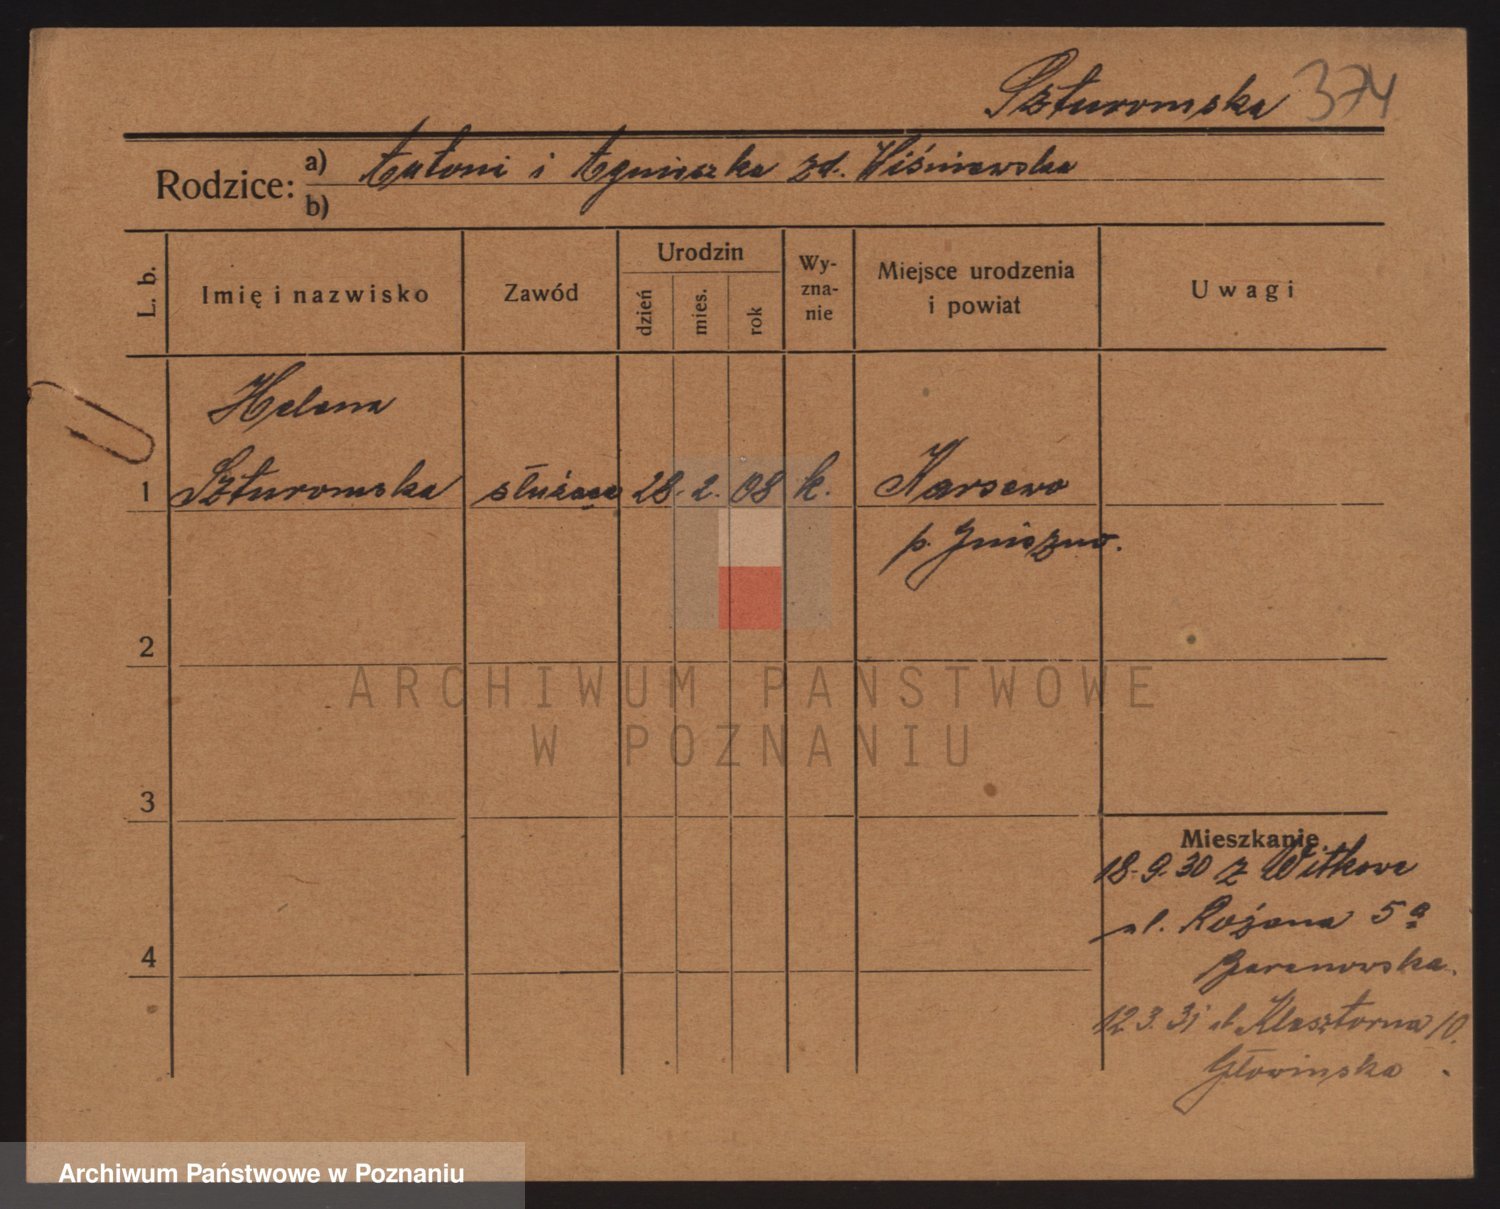 Szturomska 374
Rodzice: a) Antoni i Agnieszka zd. Wiśniewska
b)
L. b.
Imię i nazwisko
Zawód
Urodzin
dzień
mies.
rok
Wy-
zna-
nie
Miejsce urodzenia
i powiat
Uwagi
Helena
1 Szturomska służąca 28. 2. 08 k. Karsewo
p. Gniezno.
2
3
4
Mieszkanie
18.9.30 z Witkowa
ul. Różana 5a
Garanowska.
12.3.31 ul Klasztorna 10.
Głowinska.
ARCHIWUM PAŃSTWOWE
W POZNANIU
Archiwum Państwowe w Poznaniu